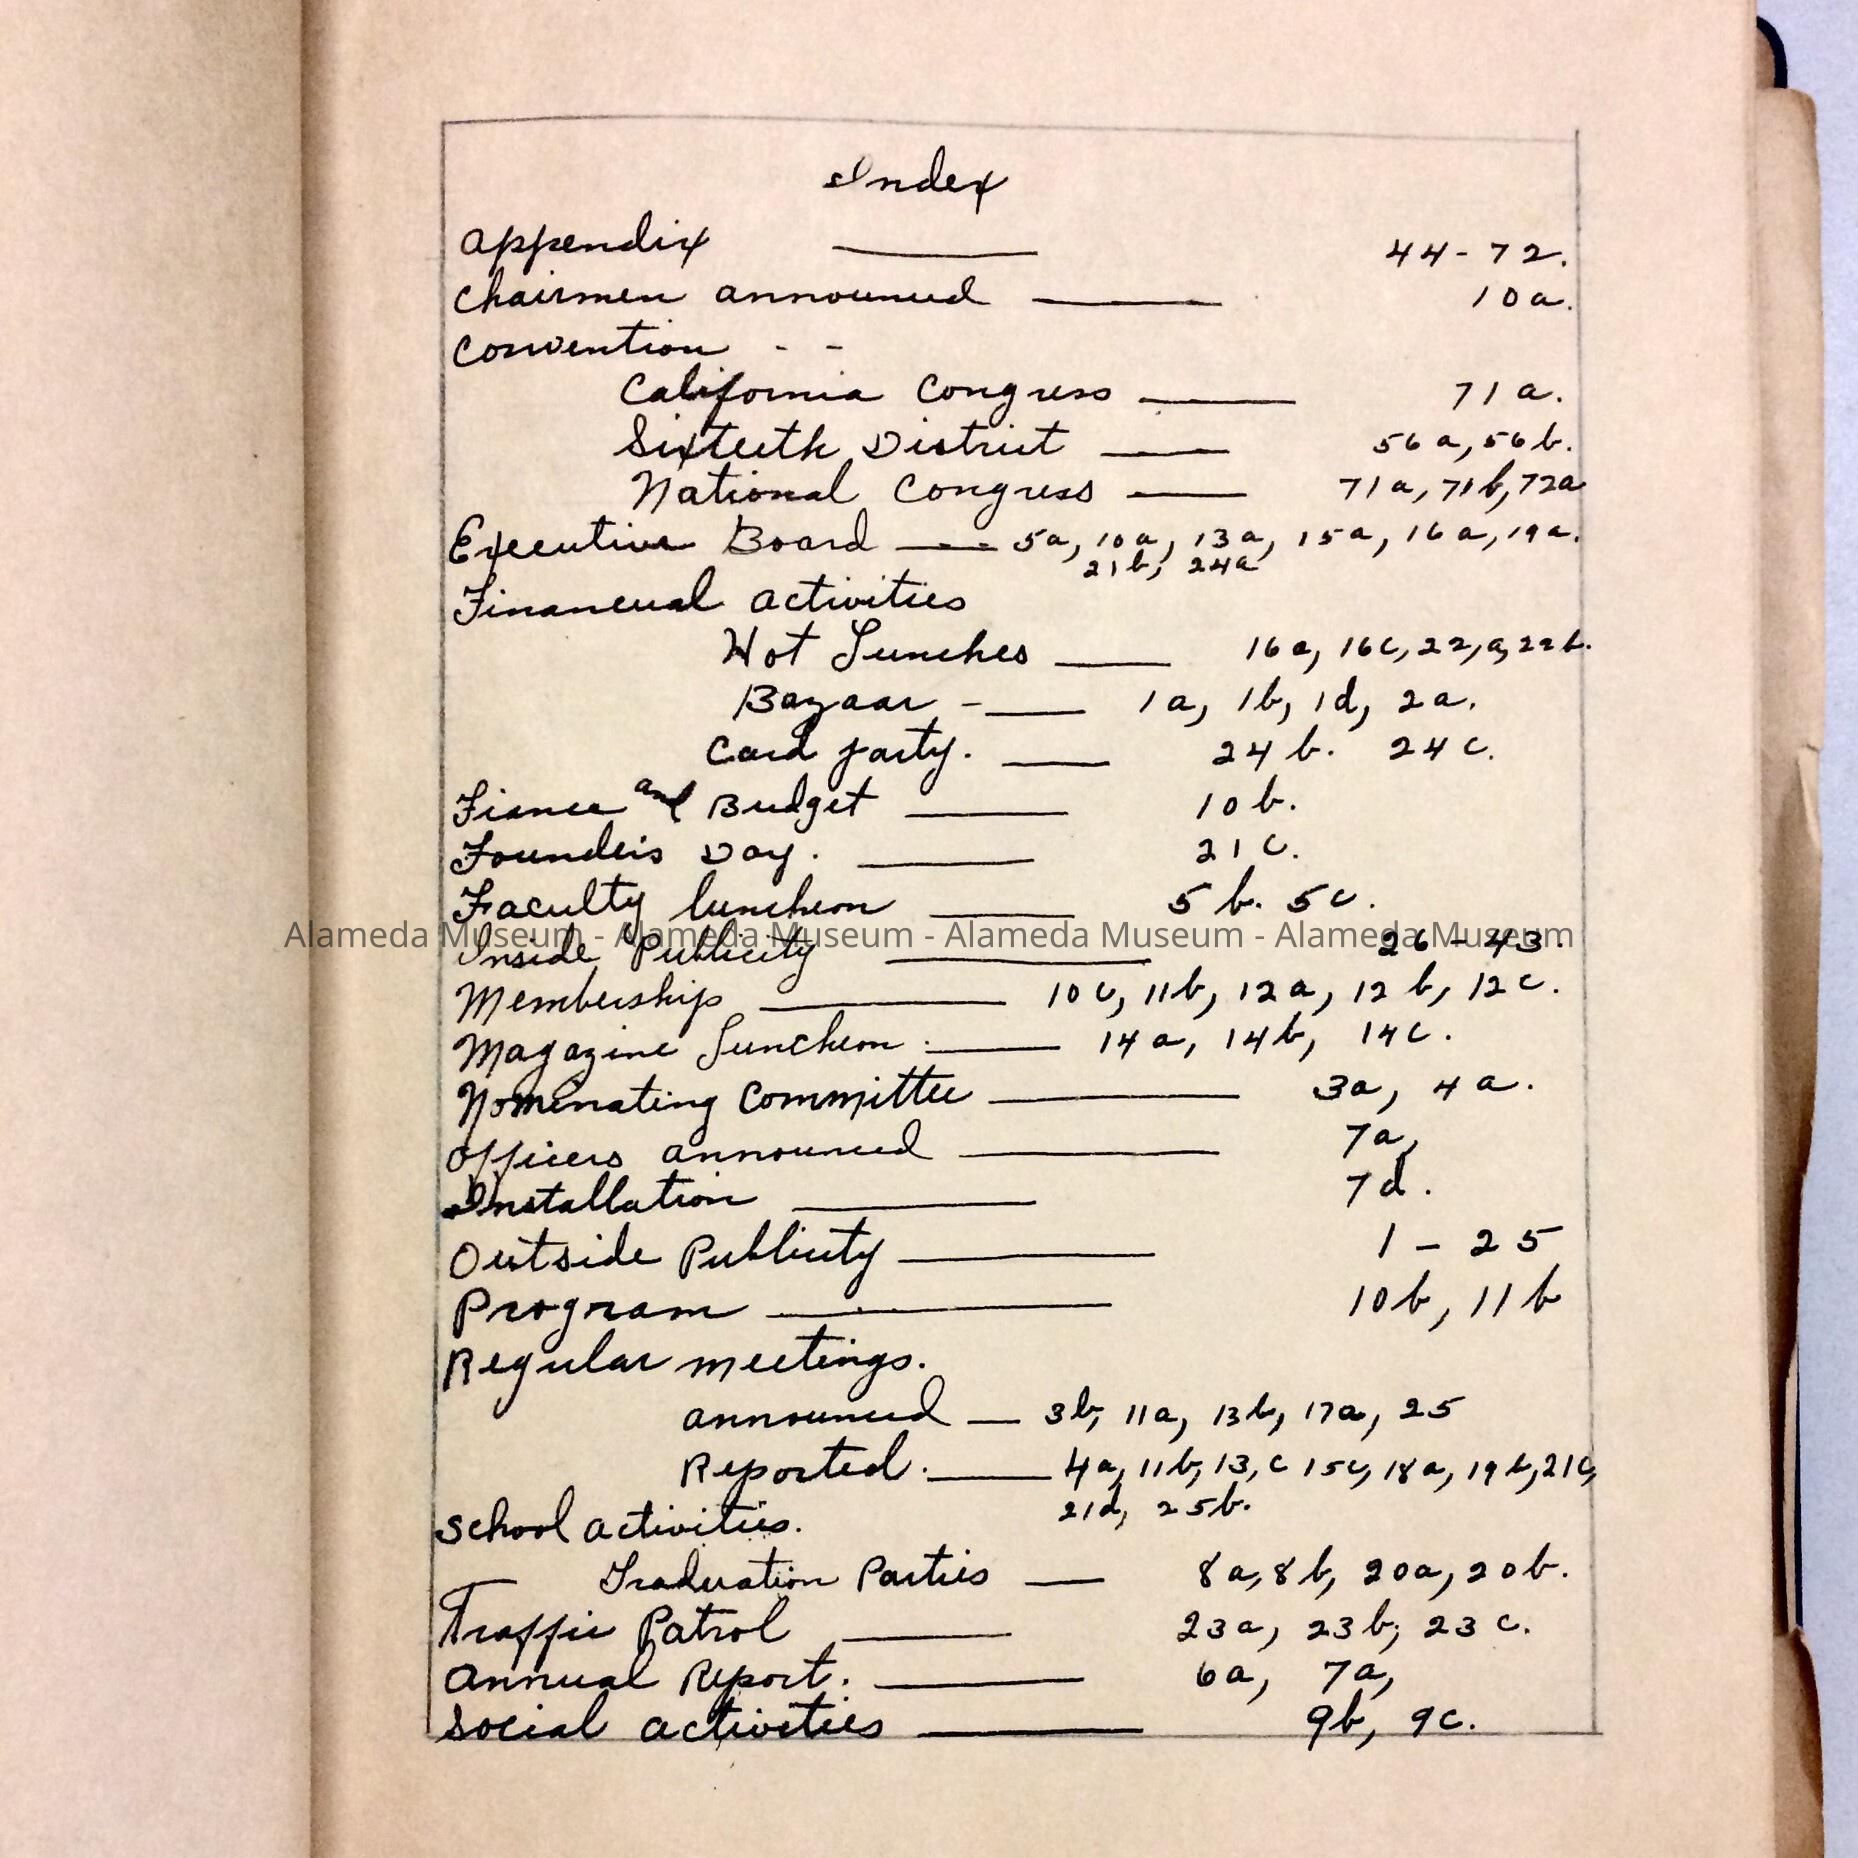 Index
Appendix ——— 44-72.
Chairmen announced ——— 10a.
Convention - -
California Congress ——— 71a.
Sixteeth District ——— 56a, 56b.
National Congress ——— 71a, 71b, 72a
Executive Board ——— 5a, 10a, 13a, 15a, 16a, 19a.
21b, 24a
Finanecial activities
Hot Lunches ——— 16a, 16c, 22,a, 22b.
Bazaar - ——— 1a, 1b, 1d, 2a.
Card party. ——— 24b. 24c.
Fiance and Budget ——— 10b.
Founders Day. ——— 21c.
Faculty luncheon ——— 5b. 5c.
Alameda Museum - Alameda Museum - Alameda Museum - Alameda Museum
Inside Publicity ——— 26-43.
Membership ——— 10c, 11b, 12a, 12b, 12c.
Magazine Luncheon. ——— 14a, 14b, 14c.
Nominating Committee ——— 3a, 4a.
Officers announced ——— 7a,
Installation ——— 7d.
Outside Publicity ——— 1-25
Program ——— 10b, 11b
Regular meetings.
announced — 3b, 11a, 13b, 17a, 25
Reported. ——— 4a, 11b, 13,c 15c, 18a, 19b, 21c,
21d, 25b.
School activities.
Graduation Parties — 8a, 8b, 20a, 20b.
Traffic Patrol ——— 23a, 23b, 23c.
Annual Report. ——— 6a, 7a,
Social activities ——— 9b, 9c.